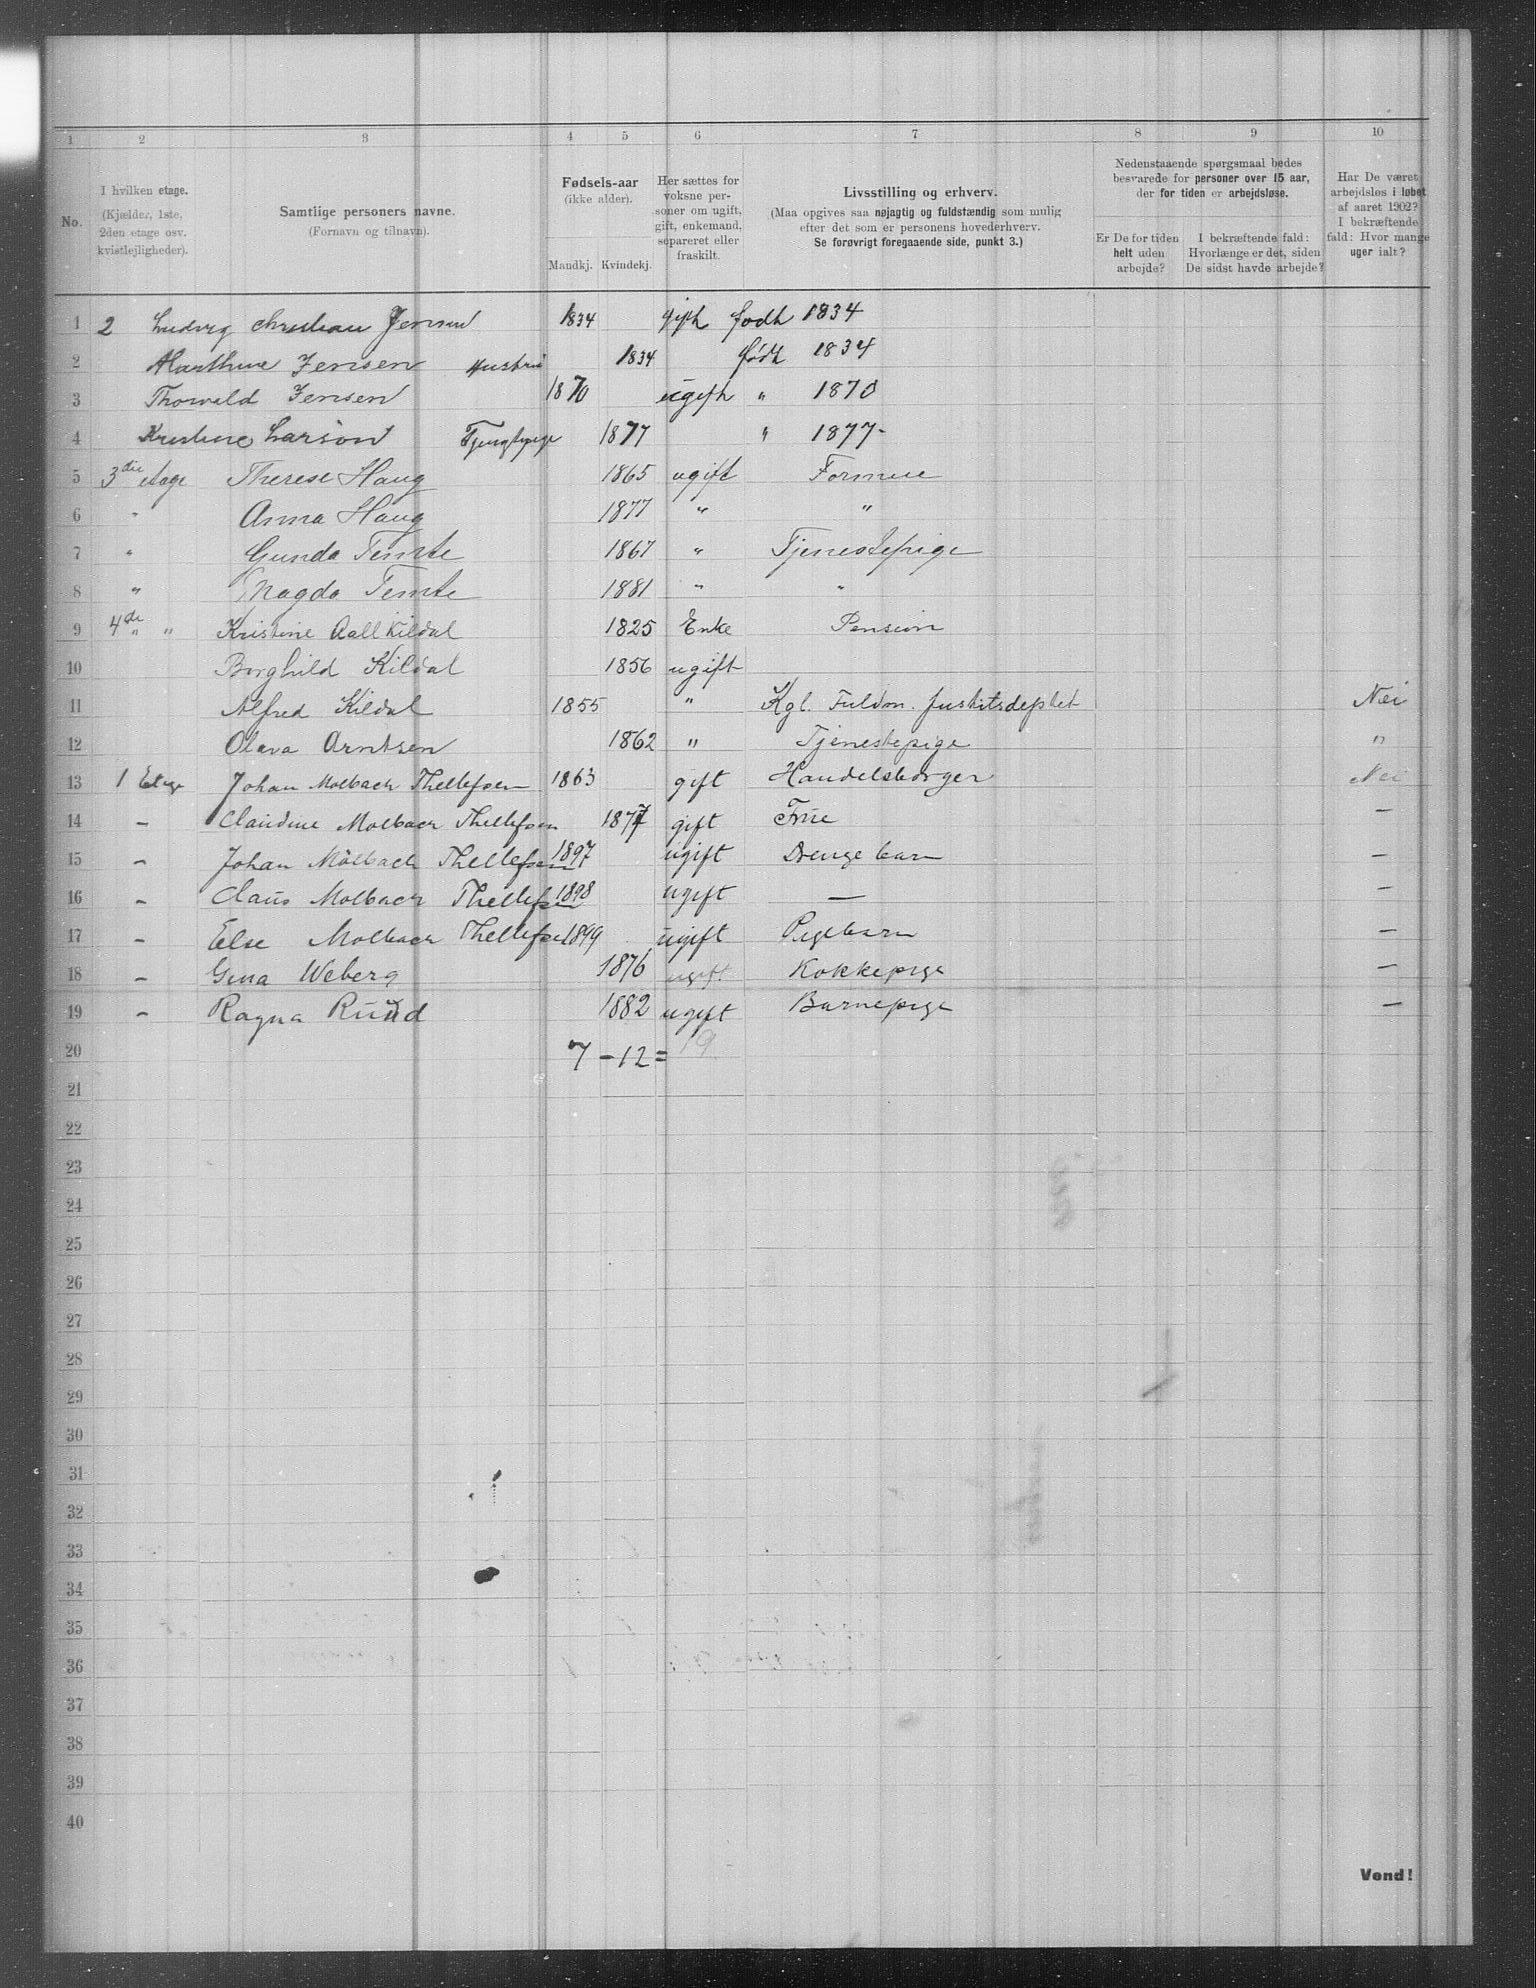 1 2 3 4 5 6 7 8 9 10
No.
I hvilken etage.
(Kjælder, 1ste,
2den etage osv.
kvistlejligheder).
Samtlige personers navne.
(Fornavn og tilnavn).
Fødsels-aar
(ikke alder).
Mandkj. Kvindekj.
Her sættes for
voksne per-
soner om ugift,
gift, enkemand,
separeret eller
fraskilt.
Livsstilling og erhverv.
(Maa opgives saa nøjagtig og fuldstændig som mulig
efter det som er personens hovederhverv.
Se forøvrigt foregaaende side, punkt 3.)
Nedenstaaende spørgsmaal bedes
besvarede for personer over 15 aar,
der for tiden er arbejdsløse.
Er De for tiden
helt uden
arbejde?
I bekræftende fald:
Hvorlænge er det, siden
De sidst havde arbejde?
Har De været
arbejdsløs i løbet
af aaret 1902?
I bekræftende
fald: Hvor mange
uger ialt?
1 2 Ludvig Christian Jensen 1834 gift født 1834
2 Marthine Jensen Hustru 1834 født 1834
3 Thorvald Jensen 1870 ugift " 1870
4 Kristine Larson 1877 " 1877-
5 3die etage Therese Haug 1865 ugift Formue
6 " Anna Haug 1877 " "
7 " Gunda Temte 1867 " Tjenestepige
8 " Magda Temte 1881 " "
9 4de " " Kristine Aall Kildal 1825 Enke Pension
10 Borghild Kildal 1856 ugift
11 Alfred Kildal 1855 " Kgl. Fuldm. Justitsdeptet Nei
12 Olava Arntsen 1862 " Tjenestepige "
13 1 Etage Johan Molbach Thellefsen 1863 gift Handelsborger Nei
14 - Claudine Molbach Thellefsen 1877 gift Frue -
15 - Johan Molbach Thellefsen 1897 ugift Drengebarn -
16 - Claus Molbach Thellefsen 1898 ugift - -
17 - Else Molbach Thellefsen 1899 ugift Pigebarn -
18 - Gina Weberg 1876 ugift Kokkepige -
19 - Ragna Ruud 1882 ugift Barnepige -
20 7 - 12 = 19
21
22
23
24
25
26
27
28
29
30
31
32
33
34
35
36
37
38
39
40
Vend!